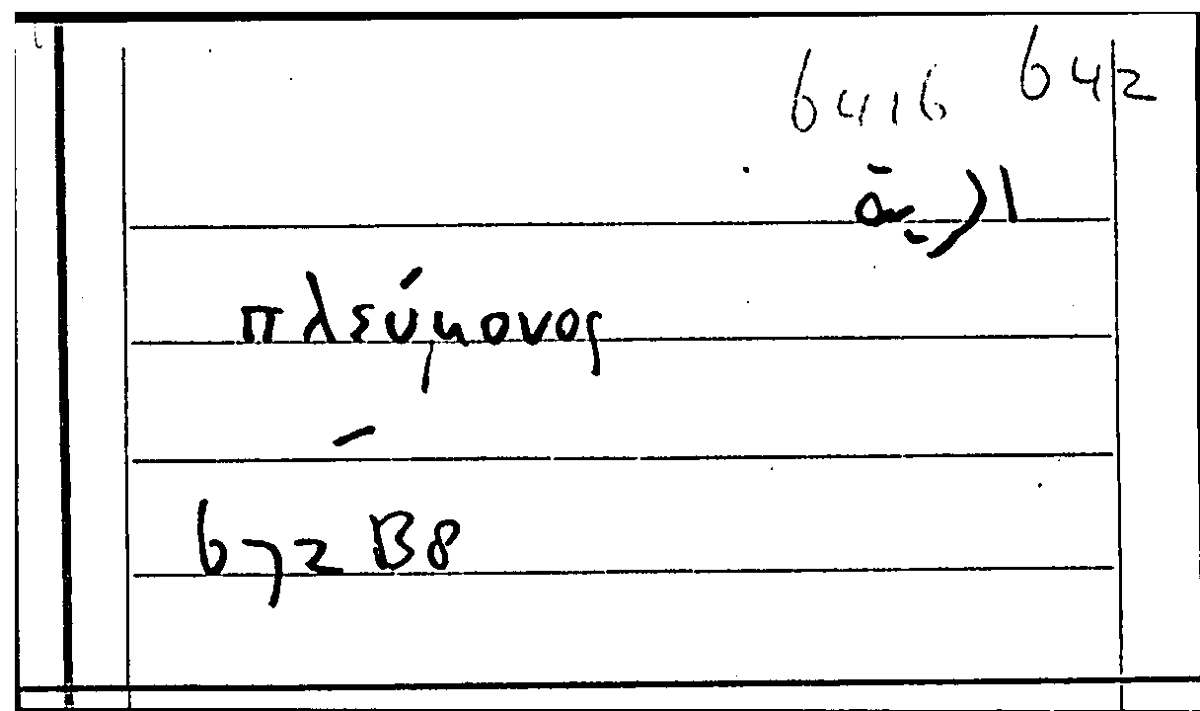 6416 642
πλεύμονος
672 B8